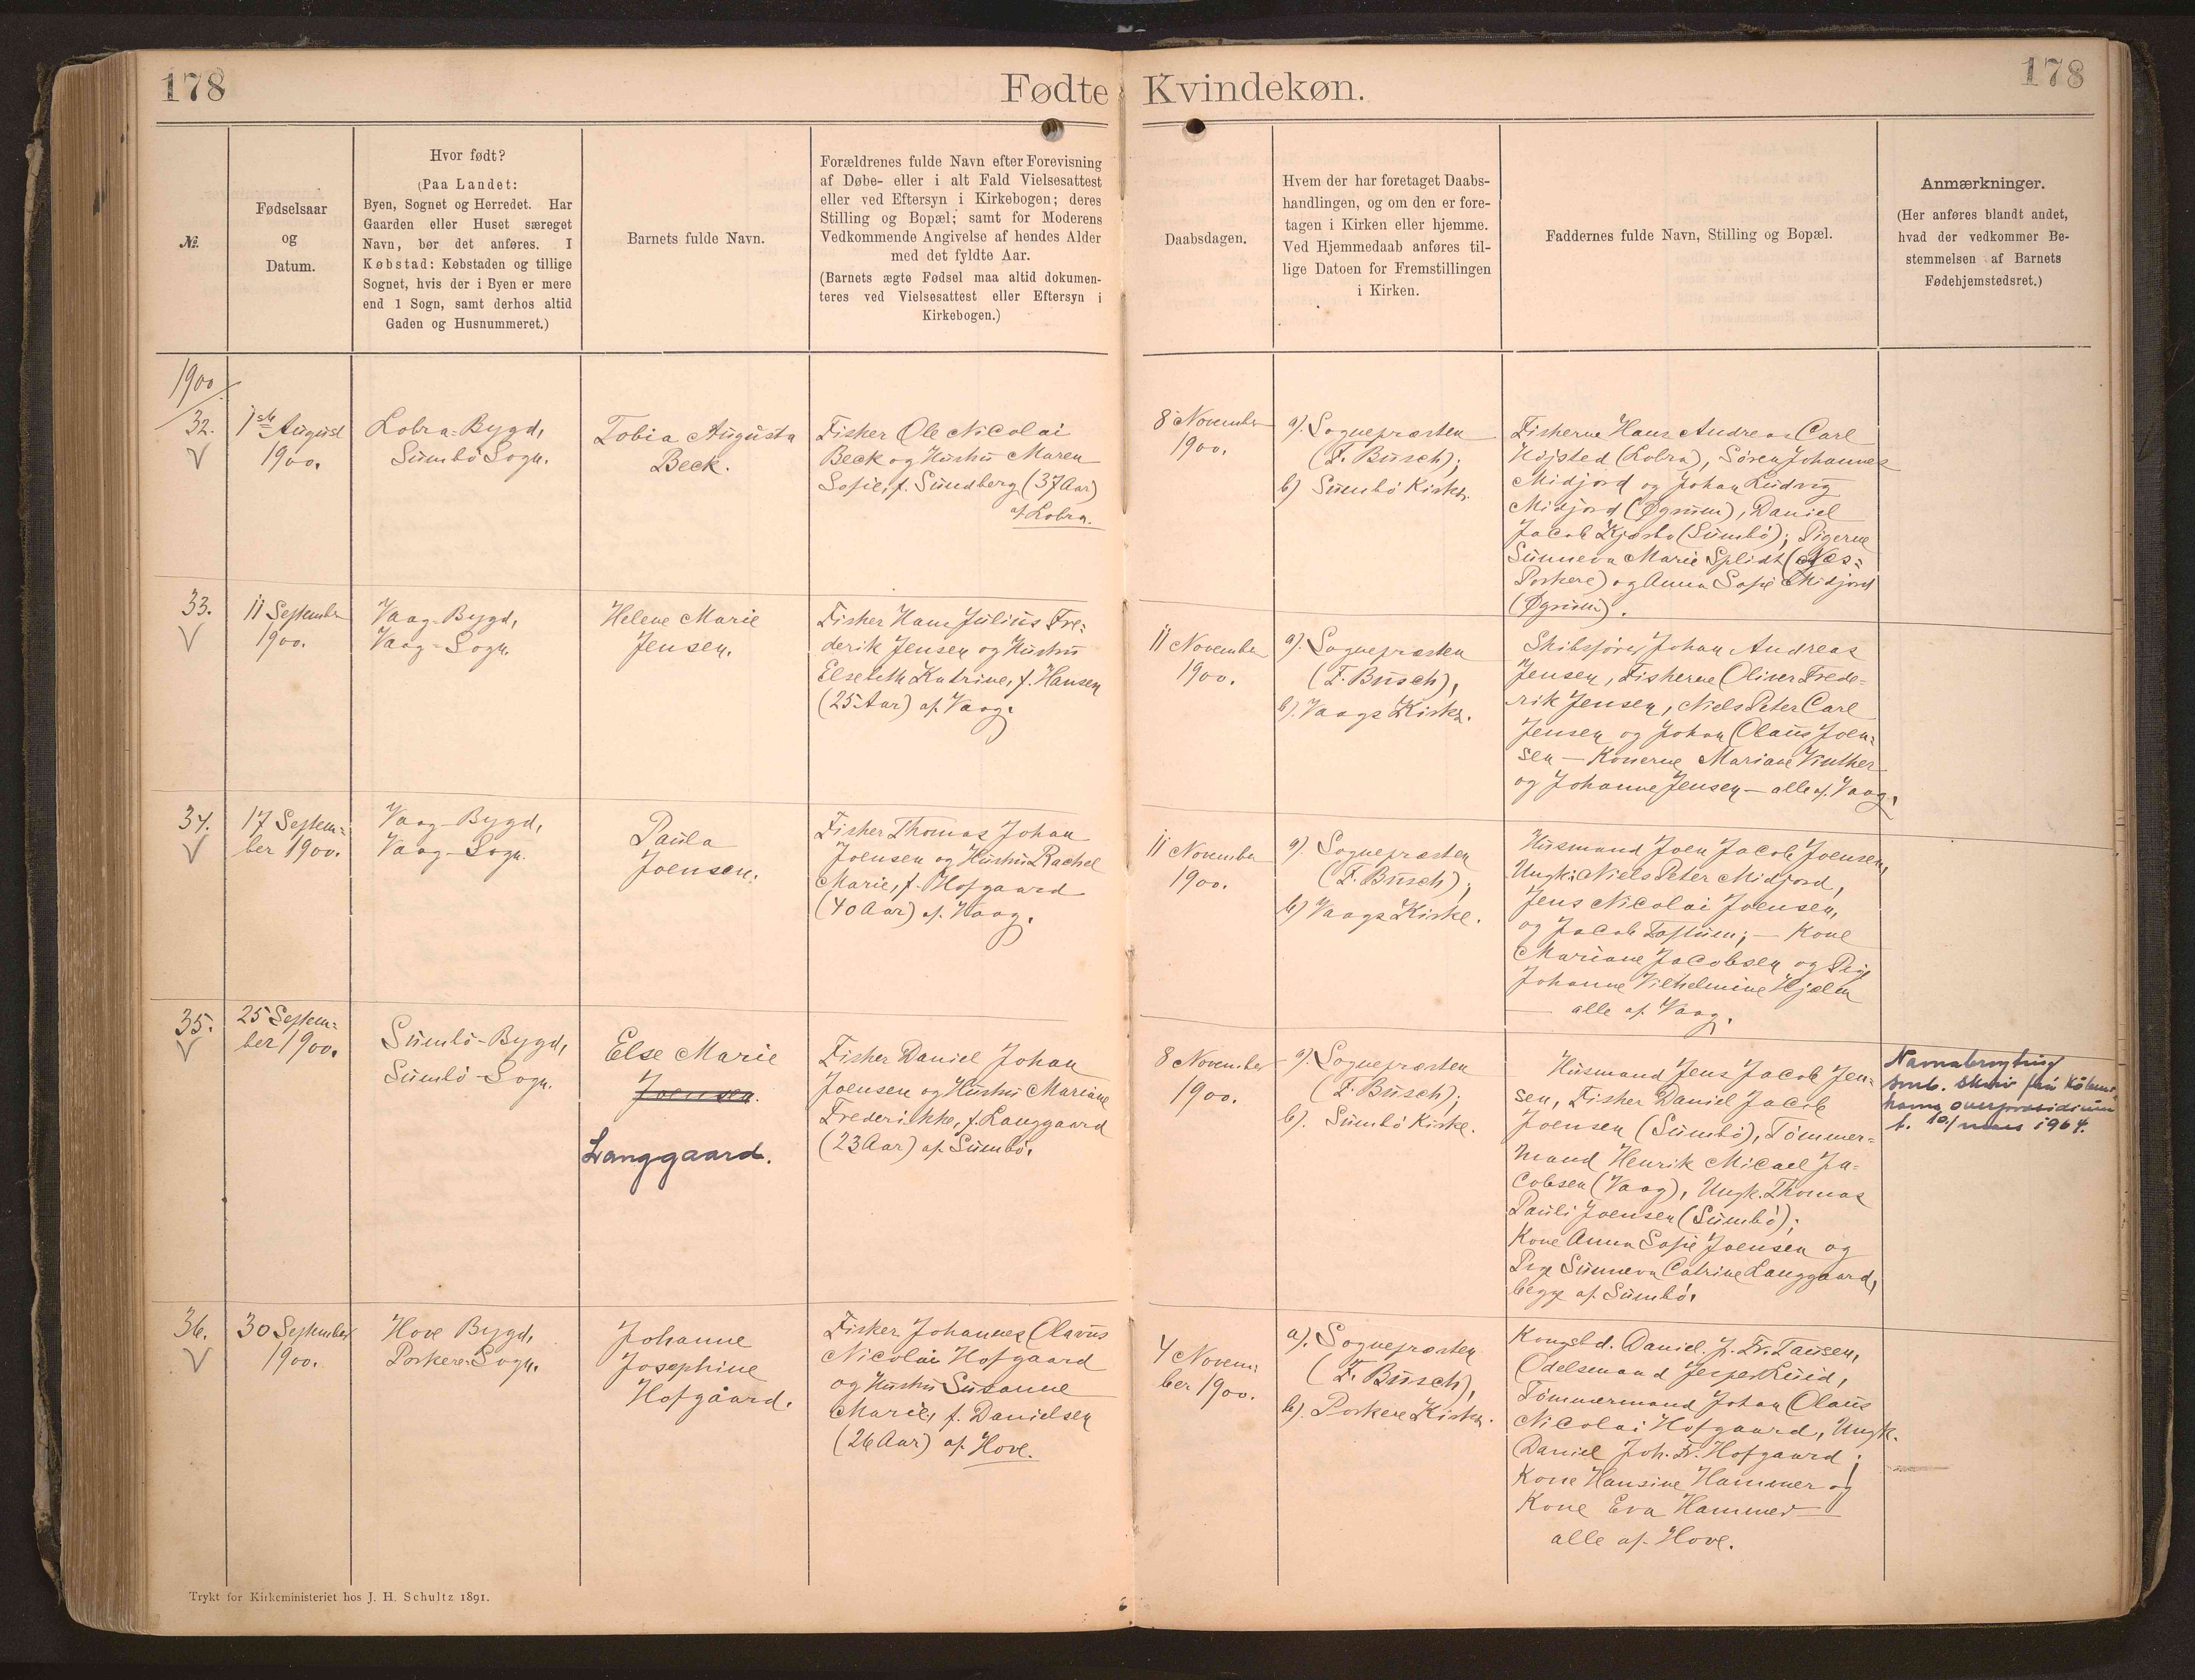 178
Fødte Kvindekøn.
178
№.
Fødselsaar
og
Datum.
Hvor født?
(Paa Landet:
Byen, Sognet og Herredet. Har
Gaarden eller Huset særeget
Navn, bør det anføres. I
Købstad: Købstaden og tillige
Sognet, hvis der i Byen er mere
end 1 Sogn, samt derhos altid
Gaden og Husnummeret.)
Barnets fulde Navn.
Forældrenes fulde Navn efter Forevisning
af Døbe- eller i alt Fald Vielsesattest
eller ved Eftersyn i Kirkebogen; deres
Stilling og Bopæl; samt for Moderens
Vedkommende Angivelse af hendes Alder
med det fyldte Aar.
(Barnets ægte Fødsel maa altid dokumen-
teres ved Vielsesattest eller Eftersyn i
Kirkebogen.)
Daabsdagen.
Hvem der har foretaget Daabs-
handlingen, og om den er fore-
tagen i Kirken eller hjemme.
Ved Hjemmedaab anføres til-
lige Datoen for Fremstillingen
i Kirken.
Faddernes fulde Navn, Stilling og Bopæl.
Anmærkninger.
(Her anføres blandt andet,
hvad der vedkommer Be-
stemmelsen af Barnets
Fødehjemstedsret.)
1900
32.
1ste August
1900.
Lobra-Bygd,
Sumbö Sogn.
Tobia Augusta
Beck.
Fisker Ole Nicolai
Beck og Hustru Maren
Sofie, f. Sundberg (37 Aar)
af Lobra.
8 November
1900.
a). Sognepræsten
(F. Busch);
b) Sumbö Kirke.
Fiskerne Hans Andreas Carl
Højsted (Lobra), Søren Johannes
Midjord og Johan Ludvig
Midjord (Øgrum), Daniel
Jacob Kjærbo (Sumbö); Pigerne
Sunneva Marie Splidt (Næs=
Porkere) og Anna Sofie Midjord
(Øgrum).
33.
11 September
1900.
Vaag-Bygd,
Vaag-Sogn.
Helene Marie
Jensen.
Fisker Hans Julius Fre=
derik Jensen og Hustru
Elsebeth Katrine, f. Hansen
(25 Aar) af Vaag.
11 November
1900.
a). Sognepræsten
(F. Busch),
b). Vaags Kirke.
Skibsfører Johan Andreas
Jensen, Fiskerne Oliver Frede=
rik Jensen, Niels Peter Carl
Jensen og Johan Olaus Joen=
sen — Konerne Mariane Vinther
og Johanne Jensen — alle af Vaag.
34.
17 Septem=
ber 1900.
Vaag-Bygd,
Vaag-Sogn.
Paula
Joensen.
Fisker Thomas Johan
Joensen og Hustru Rachel
Marie, f. Hofgaard
(40 Aar) af Vaag.
11 November
1900.
a) Sognepræsten
(F. Busch);
b) Vaags Kirke.
Husmand Joen Jacob Joensen,
Ungk: Niels Peter Midjord,
Jens Nicolai Joensen,
og Jacob Toftum; — Kone
Mariane Jacobsen og Pige
Johanne Vilhelmine Hjelm
— alle af Vaag.
35.
25 Septem=
ber 1900.
Sumbö-Bygd,
Sumbö-Sogn.
Else Marie
Joensen.
Langgaard.
Fisker Daniel Johan
Joensen og Hustru Mariane
Frederikke, f. Langgaard
(23 Aar) af Sumbö.
8 November
1900.
a). Sognepræsten
(F. Busch);
b). Sumbö Kirke.
Husmand Jens Jacob Jen=
sen, Fisker Daniel Jacob
Joensen (Sumbö), Tömmer=
mand Henrik Micael Ja=
cobsen (Vaag), Ungk. Thomas
Pauli Joensen (Sumbö);
Kone Anna Sofie Joensen og
Pige Sunneva Catrine Langgaard,
begge af Sumbö.
Navnabroyting
smb. skriv frá Köben-
havns overpræsidium
f. 10/ mars 1964.
36.
30 September
1900.
Hove Bygd,
Porkere Sogn.
Johanne
Josephine
Hofgaard.
Fisker Johannes Olavus
Nicolai Hofgaard
og Hustru Susanne
Marie, f. Danielsen
(26 Aar) af Hove.
4 Novem=
ber 1900.
a). Sognepræsten
(F. Busch),
b). Porkere Kirke.
Kongsbd. Daniel J. Fr. Tausen,
Odelsmand Jesper Luid,
Tömmermand Johan Olaus
Nicolai Hofgaard, Ungk.
Daniel Joh. Fr. Hofgaard;
Kone Hansine Hammer og
Kone Eva Hammer —
alle af Hove.
Trykt for Kirkeministeriet hos J. H. Schultz 1891.